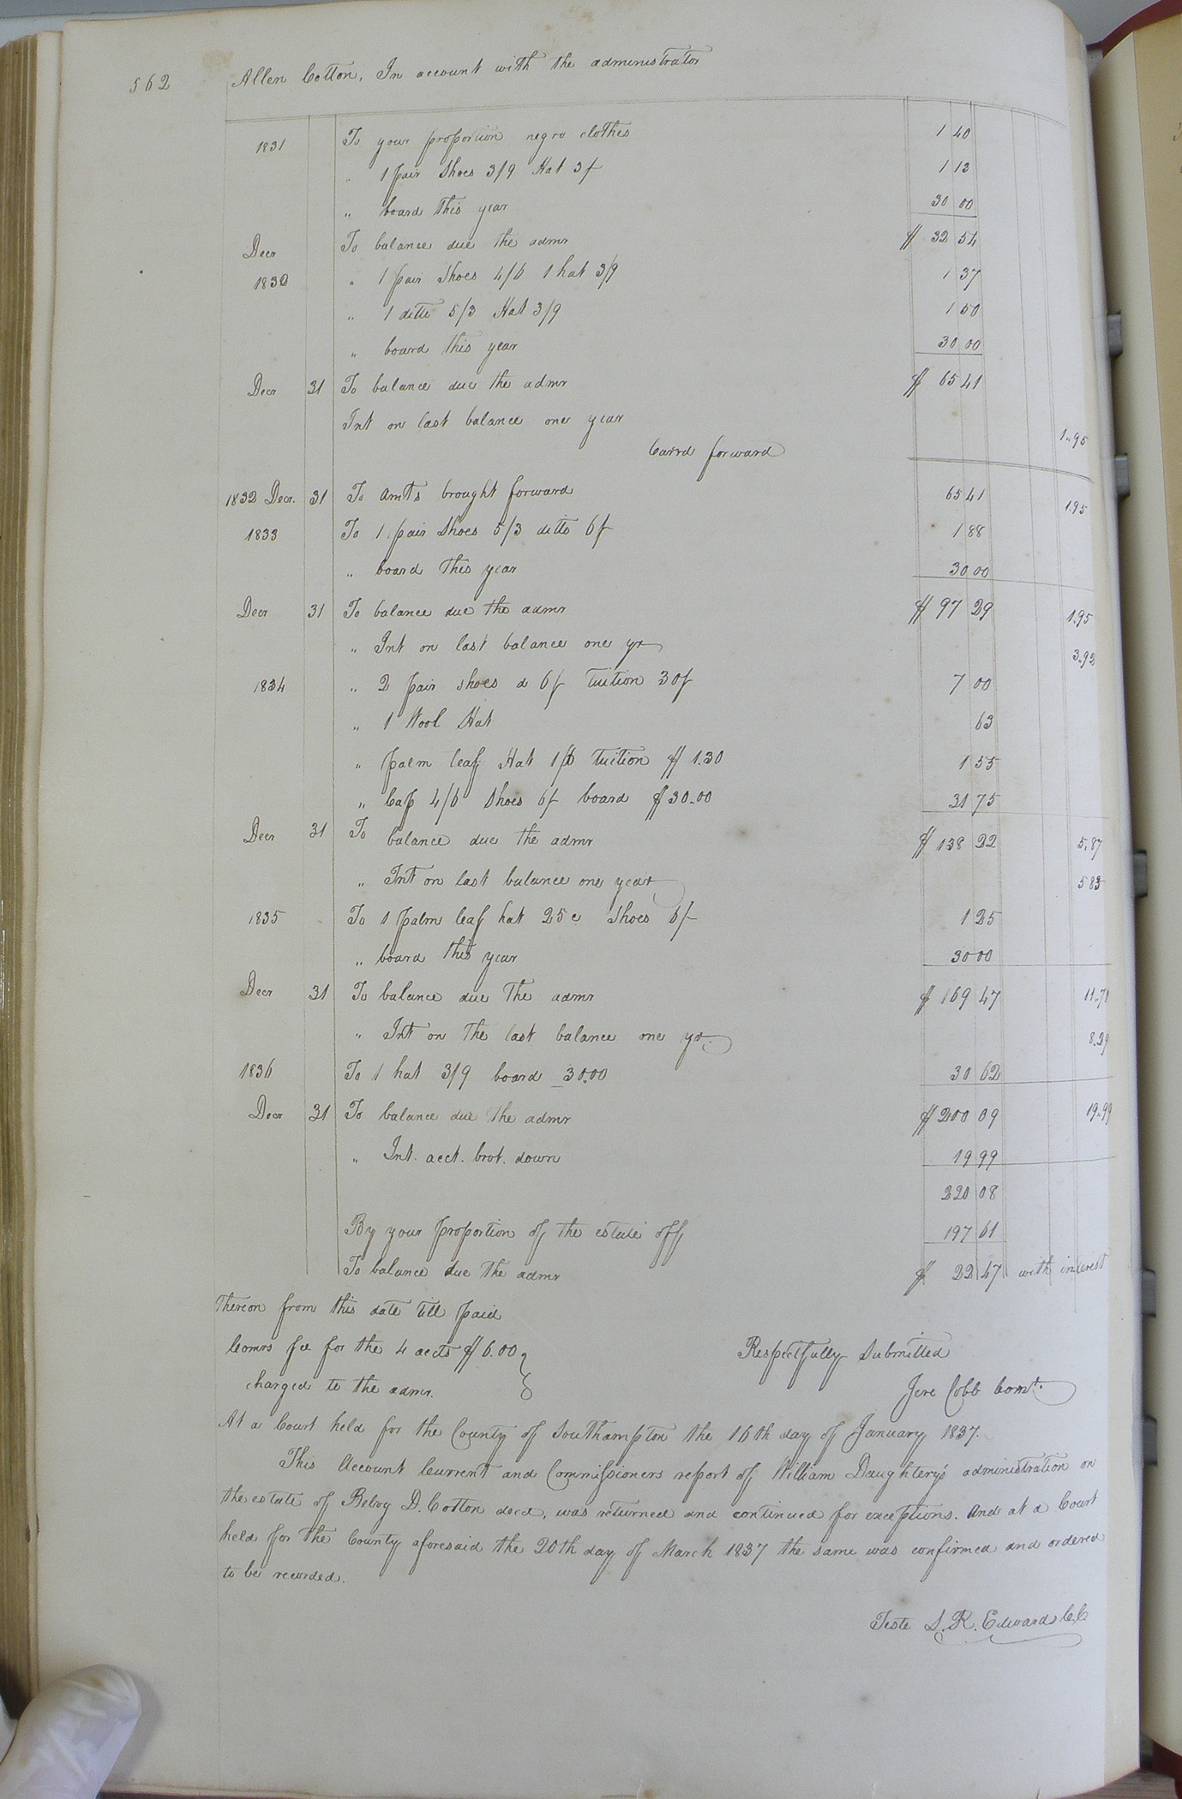 562 Allen Cotton, In account with the administrator
1831 To your proportion negro clothes 1 40
" 1 pair Shoes 3/9 Hat 3/ 1 13
" board this year 30 00
Decr To balance due the admr $ 32 54
1832 " 1 pair Shoes 4/6 1 hat 3/9 1 37
" 1 ditto 5/3 Hat 3/9 1 50
" board this year 30 00
Decr 31 To balance due the admr $ 65 41
Int on last balance one year 1.95
Carrd forward
1832 Decr. 31 To Amts brought forward 65 41 1.95
1833 To 1 pair Shoes 5/3 ditto 6/ 1 88
" board this year 30 00
Decr 31 To balance due the admr $ 97 29 1.95
" Int on last balance one yr 3.92
1834 " 2 pair shoes a 6/ tuition 30/ 7 00
" 1 Wool Hat 63
" palm leaf Hat 1/6 tuition $ 1.30 1 55
" Cap 4/6 Shoes 6/ board $ 30.00 31 75
Decr 31 To balance due the admr $ 138 22 5.87
" Int on last balance one year 5 83
1835 To 1 palm leaf hat 25c Shoes 6/ 1 25
" board this year 30 00
Decr 31 To balance due the admr $ 169 47 11.70
" Int on the last balance one yr. 8.29
1836 To 1 hat 3/9 board 30.00 30 62
Decr 31 To balance due the admr $ 200 09 19.99
" Int. acct. brot. down 19 99
220 08
By your proportion of the estate off 197 61
To balance due the admr $ 22 47 with interest
thereon from this date till paid
Comrs fee for the 4 accts $ 6.00 Respectfully Submitted
charged to the admr. Jere Cobb Comr.
At a Court held for the County of Southampton the 16th day of January 1837.
This Account Current and Commissioners report of William Daughtery's administration on
the estate of Betsy D. Cotton decd, was returned and continued for exceptions. And at a Court
held for the County aforesaid the 20th day of March 1837 the same was confirmed and ordered
to be recorded.
Teste L. R. Edwards C.C